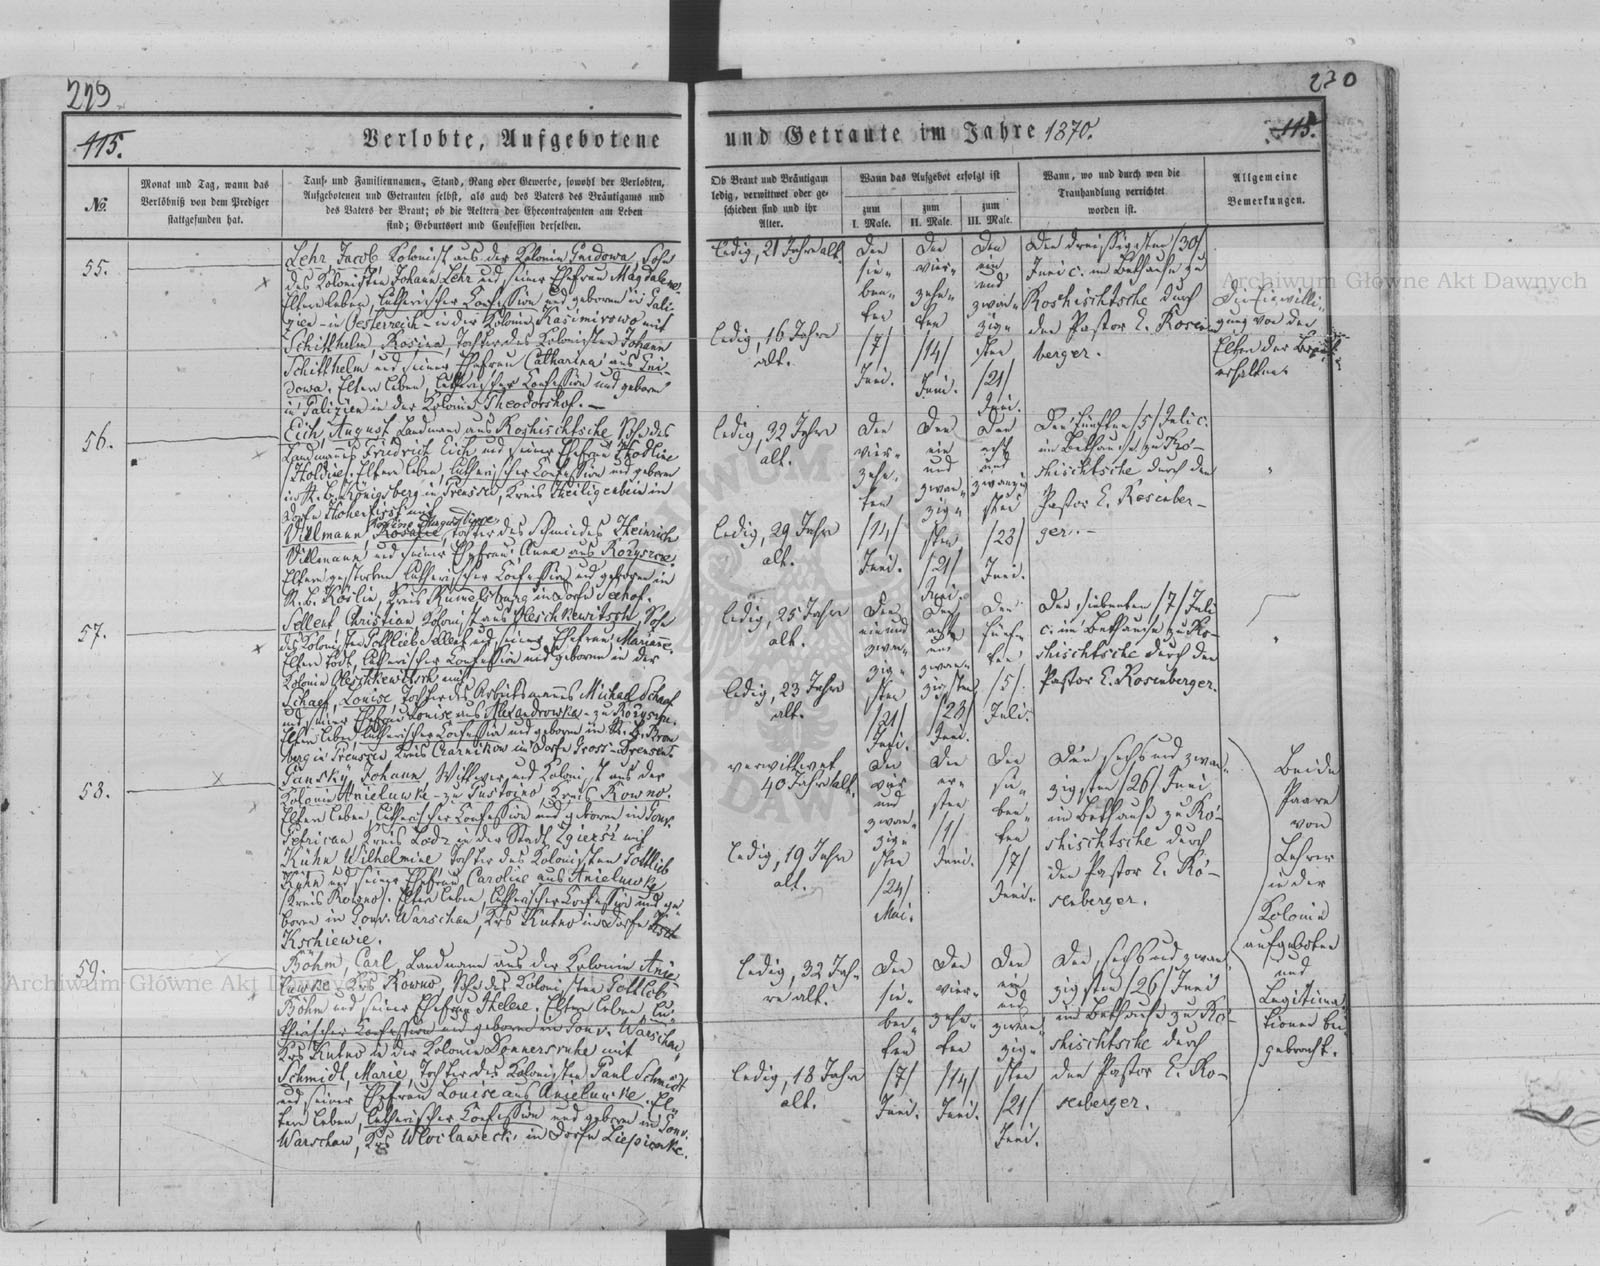 229
230
115.
Verlobte, Aufgebotene
und Getraute im Jahre 1870.
115.
№.
Monat und Tag, wann das
Verlöbniß von dem Prediger
stattgefunden hat.
Tauf- und Familiennamen, Stand, Rang oder Gewerbe, sowohl der Verlobten,
Aufgebotenen und Getrauten selbst, als auch des Vaters des Bräutigams und
des Vaters der Braut; ob die Aeltern der Ehecontrahenten am Leben
sind; Geburtsort und Confession derselben.
Ob Braut und Bräutigam
ledig, verwittwet oder ge-
schieden sind und ihr
Alter.
Wann das Aufgebot erfolgt ist
zum
I. Male.
zum
II. Male.
zum
III. Male.
Wann, wo und durch wen die
Trauhandlung verrichtet
worden ist.
Allgemeine
Bemerkungen.
55.
Lehr, Jacob Kolonist aus der Kolonie Guidowa, Sohn
des Kolonisten Johann Lehr und seiner Ehefrau Magdalena
Eltern leben, lutherischer Confession und geboren in Gali-
zien in Oesterreich in der Kolonie Kasimirowo mit
Schitthelm, Rosina, Tochter des Kolonisten Johann
Schitthelm und seiner Ehefrau Catharina aus Gui-
dowa. Eltern leben, lutherischer Confession und geboren
in Galizien in der Kolonie Theodorshof. —
ledig, 21 Jahre alt.
ledig, 16 Jahre
alt.
Den
sie-
ben-
ten
/7/
Juni.
Den
vier-
zehn-
ten
/14/
Juni.
Den
ein
und
zwan-
zig-
sten
/21/
Juni.
Den dreissigsten /30/
Juni c. im Bethause zu
Roshischtsche durch
den Pastor E. Rosen-
berger.
Die Einwilli-
gung von den
Eltern der Braut
erhalten.
56.
Eich, August, Landmann aus Roshischtsche, Sohn des
Landmannes Friedrich Eich und seiner Ehefrau
Eltern leben, lutherischer Confession und geboren
im R. b. Königsberg in Preussen, Kreis Heiligenbein im
Dorfe Hoherfirst mit
Villmann, Tochter des Schmiedes Heinrich
Villmann und seiner Ehefrau Anna aus Rozyszcze.
Eltern gestorben, lutherischer Confession und geboren in
R. b. Köslin, Kreis Rummelsburg im Dorfe Seehof.
ledig, 32 Jahre
alt.
ledig, 29 Jahre
alt.
Den
vier-
zehn-
ten
/14/
Juni.
Den
ein
und
zwan-
zig-
sten
/21/
Juni.
Den
acht
und
zwanzig-
sten
/28/
Juni.
Den fünften /5/ Juli c.
im Bethause zu Ro-
shischtsche durch den
Pastor E. Rosenber-
ger. -
"
57.
Sellent Christian, Kolonist aus Oleschkewitsch, Sohn
des Kolonisten Gottlieb Sellent und seiner Ehefrau Marianne.
Eltern todt, lutherischer Confession und geboren in der
Kolonie Oleschkewitsch mit
Schaef, Louise, Tochter des Arbeitsmannes Michael Schaef
und seiner Ehefrau Louise aus Alexandrowka zu Rozyszcze.
Eltern leben, lutherischer Confession und geboren im R. b. Brom-
berg in Preussen, Kreis Czarnikow im Dorfe Gross-Drensen.
ledig, 25 Jahre
alt.
ledig, 23 Jahre
alt.
Den
ein und
zwan-
zig-
sten
/21/
Juni.
Den
acht
und
zwan-
zigsten
/28/
Juni.
Den
fünf-
ten
/5/
Juli.
Den siebenten /7/ Juli
c. im Bethause zu Ro-
shischtsche durch den
Pastor E. Rosenberger.
"
58.
Gansky, Johann, Wittwer und Kolonist aus der
Kolonie Anieluwke zu Pustoino Kreis Rowno.
Eltern leben, lutherischer Confession und geboren im Gouv.
Petricau Kreis Lodz in der Stadt Zgierst mit
Kühn Wilhelmine Tochter des Kolonisten Gottlieb
Kühn und seiner Ehefrau Caroline aus Anieluwke
Kreis Rowno. Eltern leben, lutherischer Confession und ge-
boren im Gouv. Warschau, Krs Kutno im Dorfe
Kschiewie.
verwittwet
40 Jahre alt.
ledig, 19 Jahre
alt.
Den
vier
und
zwan-
zig-
sten
/24/
Mai.
Den
er-
sten
/1/
Juni.
Den
sie-
ben-
ten
/7/
Juni.
Den sechs und zwan-
zigsten /26/ Juni
im Bethause zu Ro-
shischtsche durch
den Pastor E. Ro-
senberger.
Beide
Paare
von
Lehrer
in der
Kolonie
aufgeboten
und
Legitima-
tionen bei-
gebracht.
59.
Böhm, Carl, Landmann aus der Kolonie Anie-
luwke Krs Rowno, Sohn des Kolonisten Gottlieb
Böhm und seiner Ehefrau Helene. Eltern leben, lu-
therischer Confession und geboren im Gouv. Warschau,
Krs Kutno in der Kolonie Donnersruhe mit
Schmidt, Marie, Tochter des Kolonisten Paul Schmidt
und seiner Ehefrau Louise aus Anieluwke. El-
tern leben, lutherischer Confession und geboren im Gouv.
Warschau, Krs Wloclaweck, im Dorfe
ledig, 32 Jah-
re alt.
ledig, 18 Jahre
alt.
Den
sie-
ben-
ten
/7/
Juni.
Den
vier-
zehn-
ten
/14/
Juni.
Den
ein
und
zwan-
zig-
sten
/21/
Juni.
Den sechs und zwan-
zigsten /26/ Juni
im Bethause zu Ro-
shischtsche durch
den Pastor E. Ro-
senberger.
Archiwum Główne Akt Dawnych
Archiwum Główne Akt Dawnych